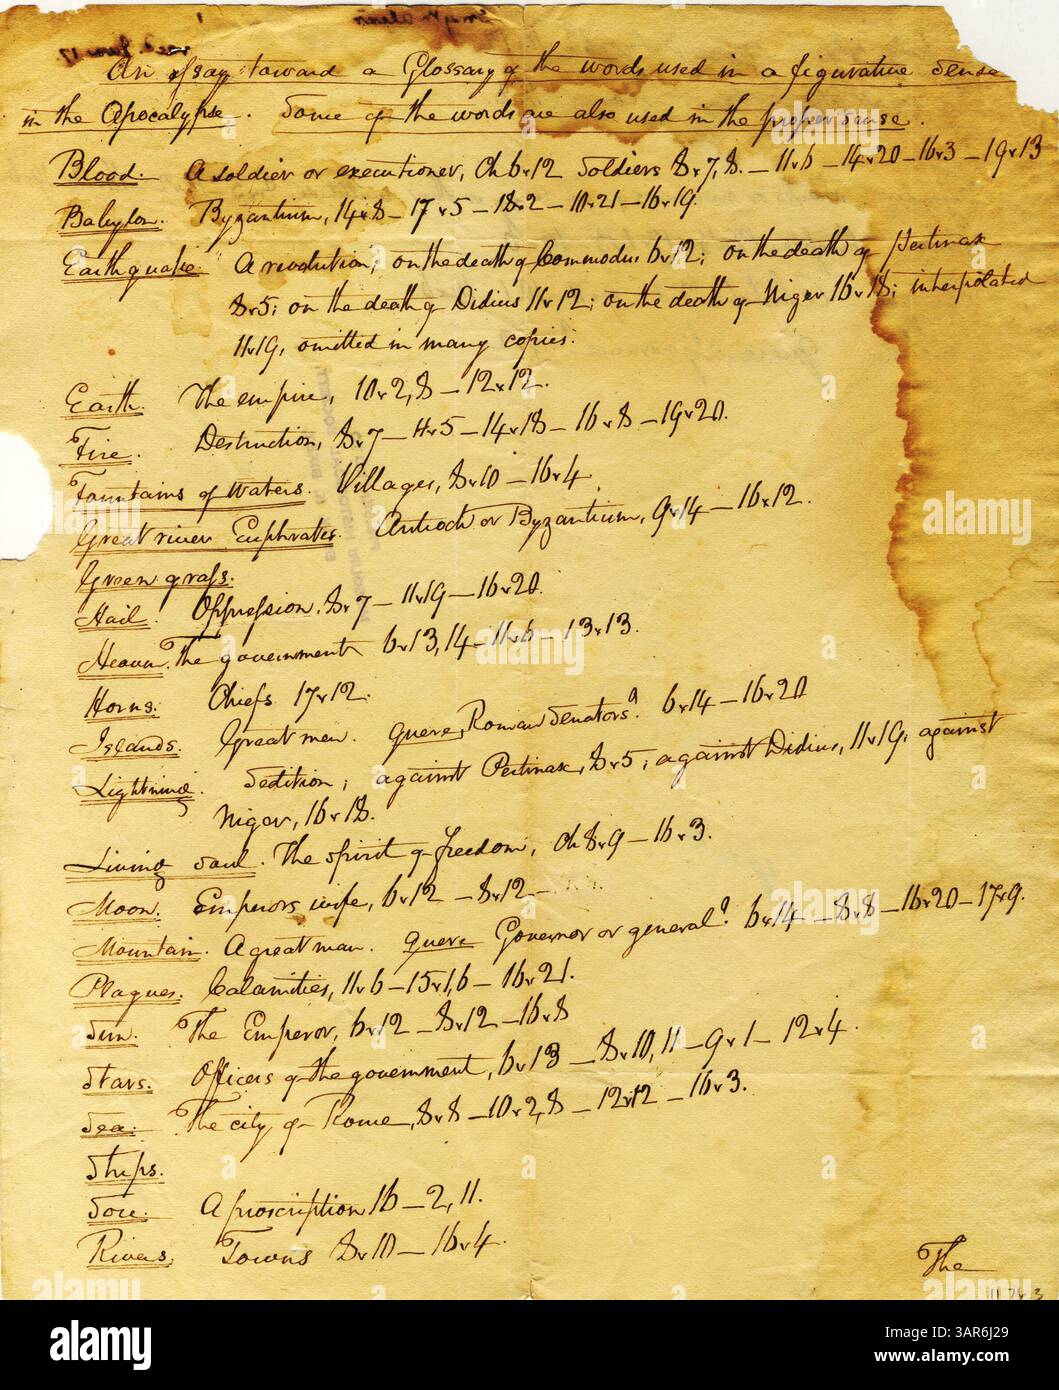 An Essay toward a Glossary of the words used in a figurative sense
in the Apocalypse. Some of the words are also used in the proper sense.
Blood. A soldier or executioner, Ch 6v12 Soldiers 8v7,8.—11v6—14v20—16v3—19v13
Babylon. Byzantium, 14v8—17v5—18v2—18v21—16v19.
Earthquake. A revolution; on the death of Commodus 6v12; on the death of Pertinax
8v5; on the death of Didius 11v12; on the death of Niger 16v18; interpolated
11v19, omitted in many copies.
Earth. The empire, 10v2,8—12v12.
Fire. Destruction, 8v7—11v5—14v18—16v8—19v20.
Fountains of waters. Villages, 8v10—16v4.
Great river Euphrates. Antioch or Byzantium, 9v14—16v12.
Green grass.
Hail. Oppression, 8v7—11v19—16v20.
Heaven. The government 6v13,14—11v6—13v13.
Horns. Chiefs 17v12.
Islands. Great men. Quere, Roman Senators? 6v14—16v20
Lightning. Sedition; against Pertinax, 8v5; against Didius, 11v19; against
Niger, 16v18.
Living Soul. The spirit of freedom, Ch 8v9—16v3.
Moon. Emperors wife, 6v12—8v12—
Mountain. A great man. Quere Governor or general? 6v14—8v8—16v20—17v9.
Plagues. Calamities, 11v6—15v1,6—16v21.
Sun. The Emperor, 6v12—8v12—16v8
Stars. Officers of the government, 6v13—8v10,11—9v1—12v4.
Sea. The city of Rome, 8v8—10v2,8—12v12—16v3.
Ships.
Sore. A proscription 16—2,11.
Rivers. Towns 8v10—16v4.
The
alamy
Image ID: 3AR6J29
www.alamy.com